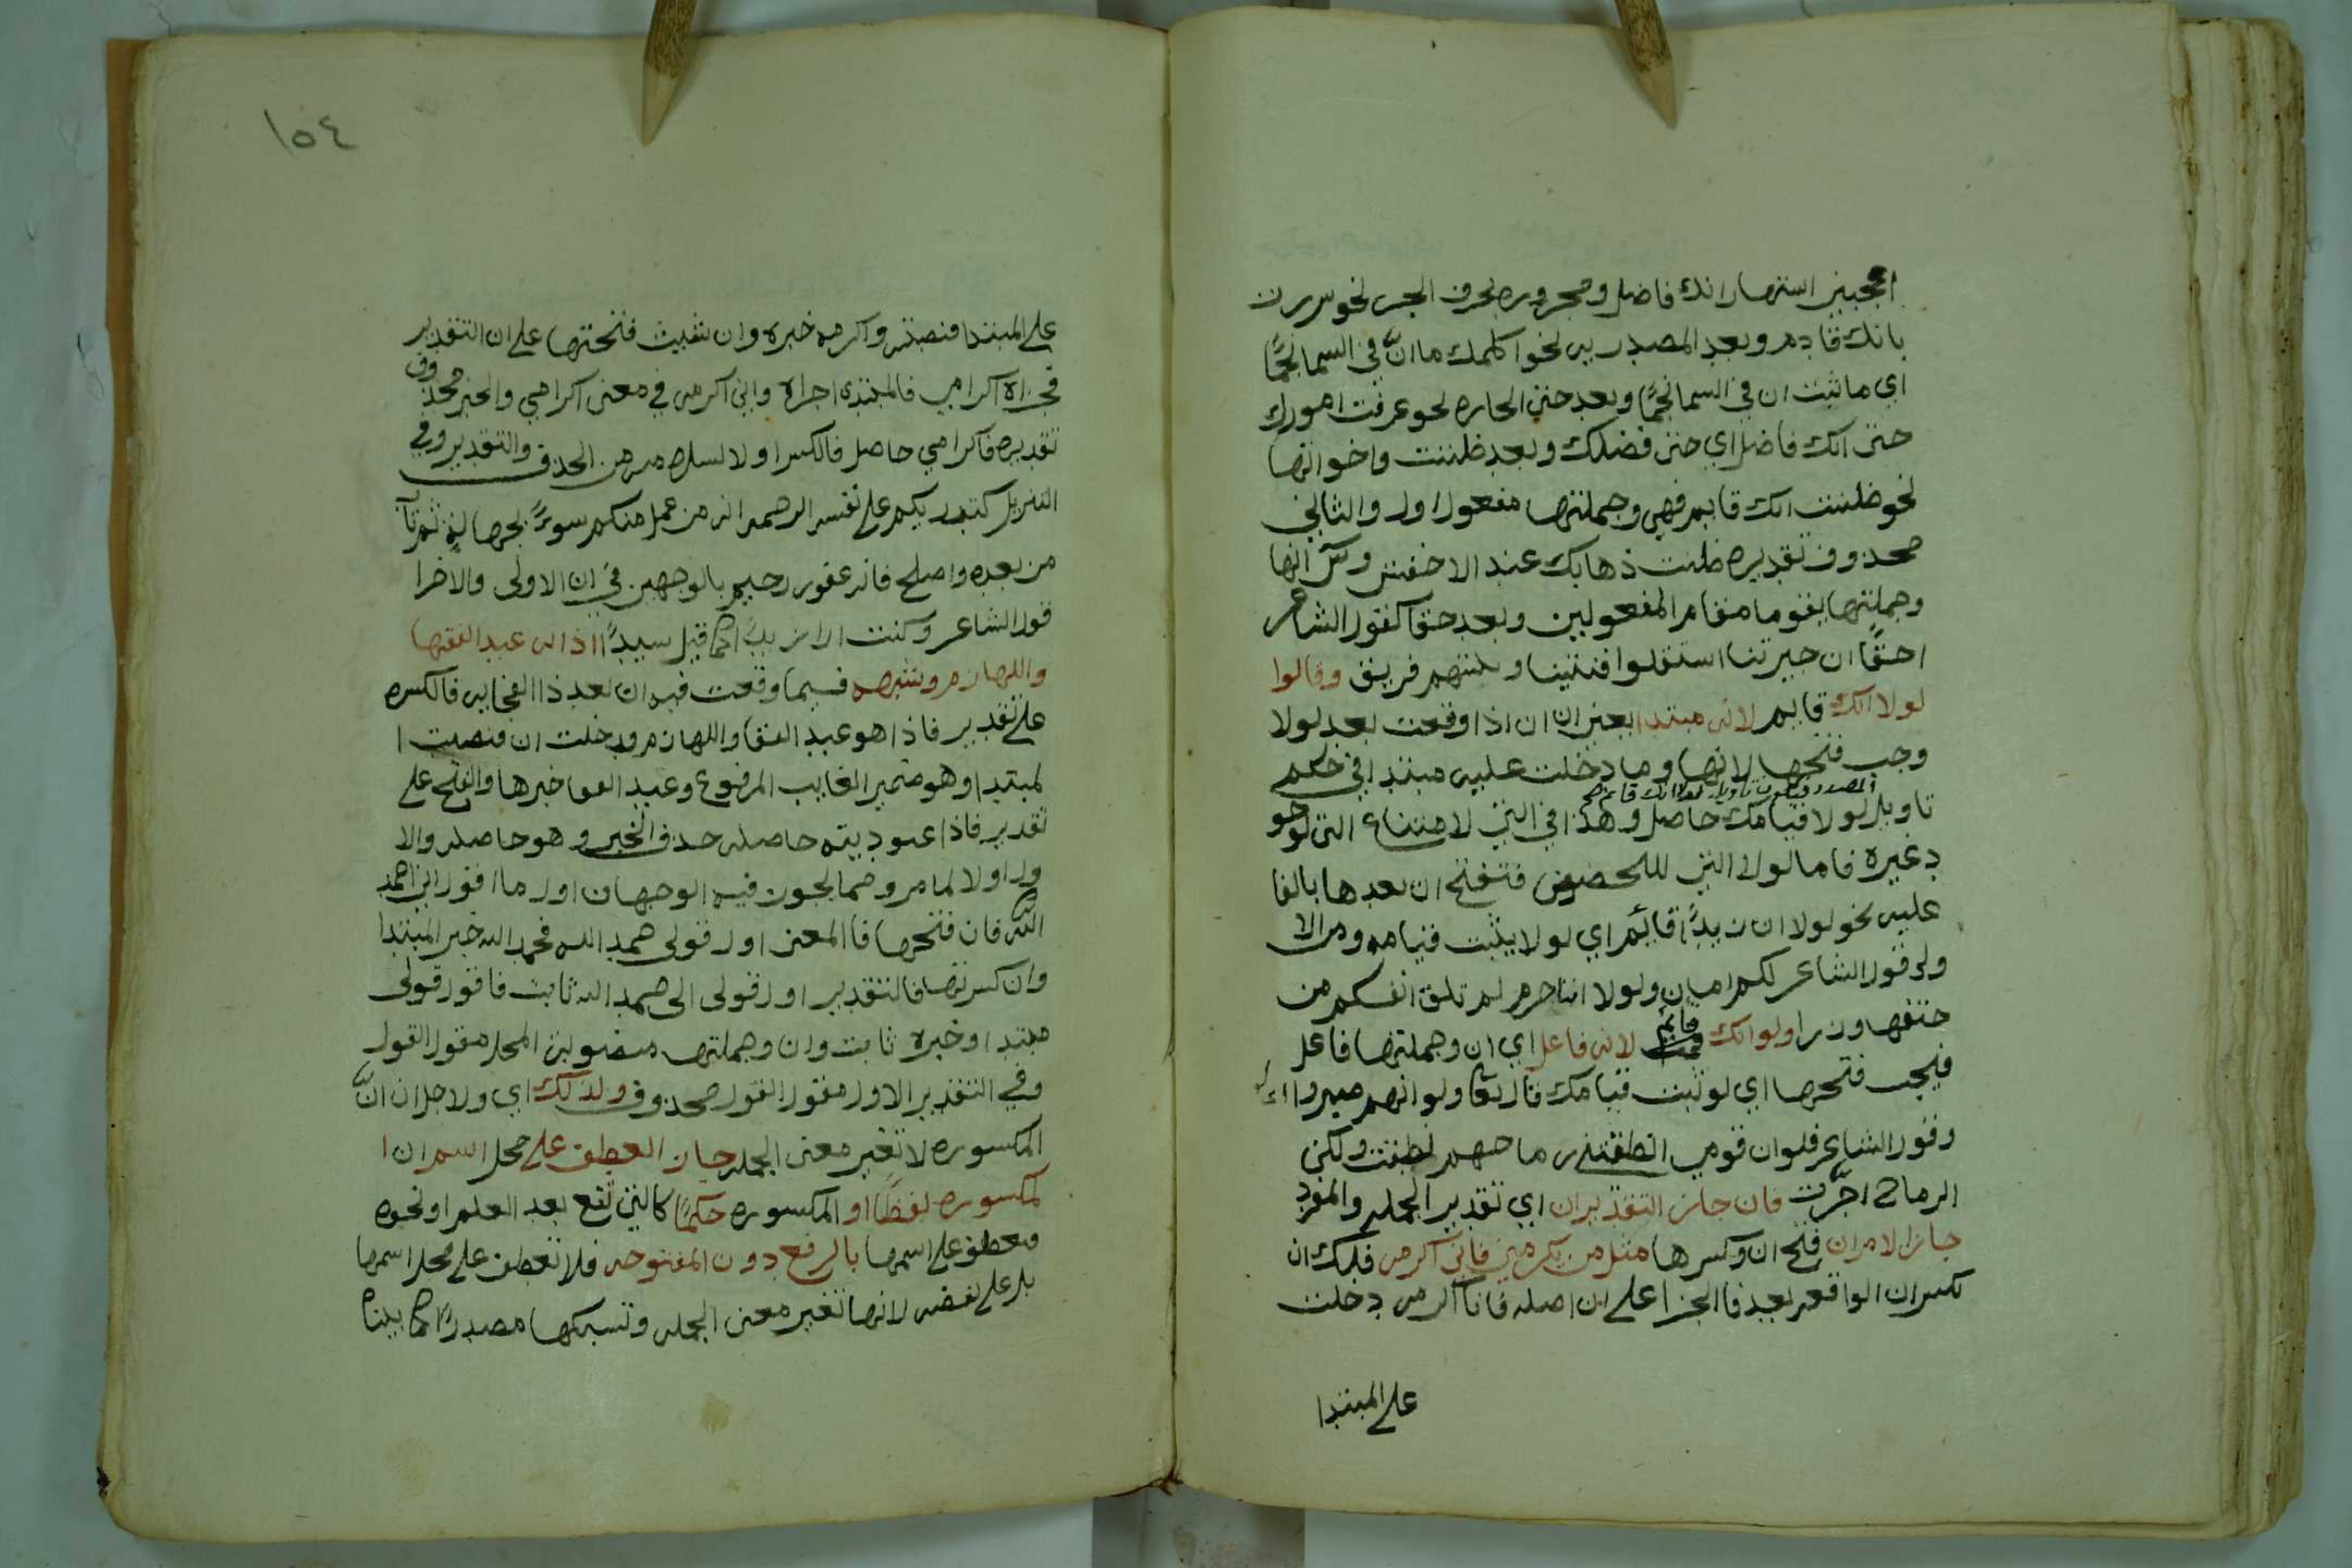 اعجبني اشتهار انك فاضل ومجروره بحرف الجر نحو سررت
بانك قادم وبعد المصدريه نحو اكلمك ما انّ في السما نجمًا
اي ما ثبت ان في السما نجمًا وبعد حتى الجاره نحو عرفت امورك
حتى انك فاضل اي حتى فضلك وبعد ظننت واخواتها
نحو ظننت انك قايم فهي وجملتها مفعول اول والثاني
محذوف تقديره ظننت ذهابك عند الاخفش و انها
وجملتها يقوما مقام المفعولين وبعد حقا كقول الشاعر
احقًا ان جيرتنا استقلوا فنيتنا ونيتهم فريق وقالوا
لولا انك قايم لانه مبتدا يعني ان ان اذا وقعت بعد لولا
وجب فتحها لانها وما دخلت عليه مبتدا في حكم
المصدر فيكون تاويل لولا انك قايم صح
تاويل لولا قيامك حاصل وهذا في التي لامتناع الشي لوجو
د غيره فاما لولا التي للتحضيض فتفتح ان بعدها بالفا
عليه نحو لولا ان زيدًا قائم اي لولا يثبت قيامه ومن الا
ول قول الشاعر لكم امان ولولا اننا حرم لم تلق انفسكم من
حتفها وزرا ولو انك قائم لانه فاعل اي ان وجملتها فاعل
فيجب فتحها اي لو ثبت قيامك قال تعا ولو انهم صبروا
وقول الشاعر فلو ان قومي انطقتني رماحهم نطقت ولكن
الرماح اجرّت فان جاز التقديران اي تقدير الجمله والمفرد
جاز الامران فتح ان وكسرها مثل من يكرمني فاني اكرمه فلك ان
تكسر ان الواقعه بعد فا الجزا على ان اصله فانا اكرمه دخلت
على المبتدا
١٥٤
على المبتدا فنصبته واكرمه خبره وان شيت فتحتها على ان التقدير
فجزاه اكرامي فالمبتدى اجراه واني اكرمه في معنى اكرامي والخبر محذوف
تقديره فاكرامي حاصل فالكسر اولا لسلامه من الحذف والتقدير وفي
التنزيل كتب ربكم على نفسه الرحمه انه من عمل منكم سوءً بجهالة ثم تاب
من بعده واصلح فانه غفور رحيم بالوجهين في ان الاولى والاخرا
قول الشاعر وكنت ارا زيدًا كما قيل سيدًا اذا انه عبد القفا
واللهازم وشبهه فيما وقعت فيه ان بعد ذا الفجايه فالكسره
على تقدير فاذا هو عبد القفا واللهازم ودخلت ان فنصبت ا
لمبتدا وهو ضمير الغايب المرفوع وعبد القفا خبرها والفتح على
تقدير فاذا عبوديته حاصله حذف الخبر وهو حاصله والا
ول اولا لما مر ومما يجوز فيه الوجهان اول ما اقول اني احمد
الله فان فتحها فالمعنى اول قولي حمد الله فحمد الله خبر المبتدا
وان كسرتها فالتقدير اول قولي اني احمد الله ثابت فاقول قولي
مبتدا وخبره ثابت وان وجملتها منصوبة المحل مقول القول
وفي التقدير الاول مقول القول محذوف ولذلك اي ولاجل ان انّ
المكسوره لا تغير معنى الجمله جاز العطف على محل اسم ان ا
لمكسوره لفظًا او المكسوره حكمًا كالتي تقع بعد العلم او نحوه
فعطف على اسمها بالرفع دون المفتوحه فلا تعطف على محل اسمها
بل على لفضه لانها تغير معنى الجمله وتسبكها مصدرًا كما بينا